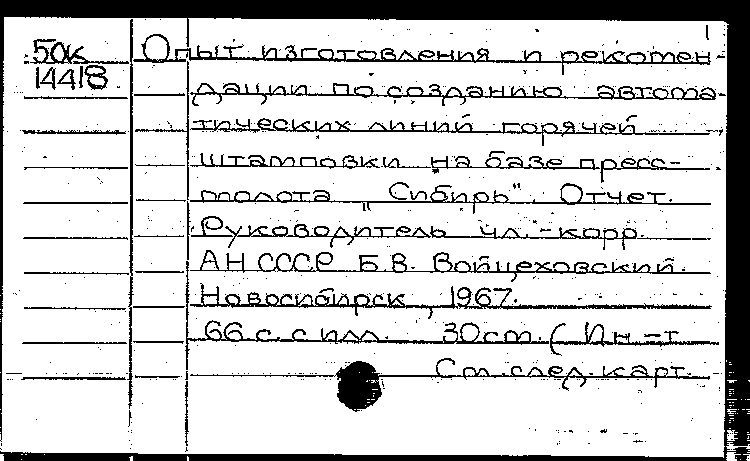 1
50к Опыт изготовления и рекомен-
14418 дации по созданию автома-
тических линий горячей
штамповки на базе пресс-
молота "Сибирь". Отчет.
Руководитель чл.-корр.
АН СССР Б.В. Войцеховский.
Новосибирск, 1967.
66 с. с илл. 30см. (Ин-т
См. след. карт.